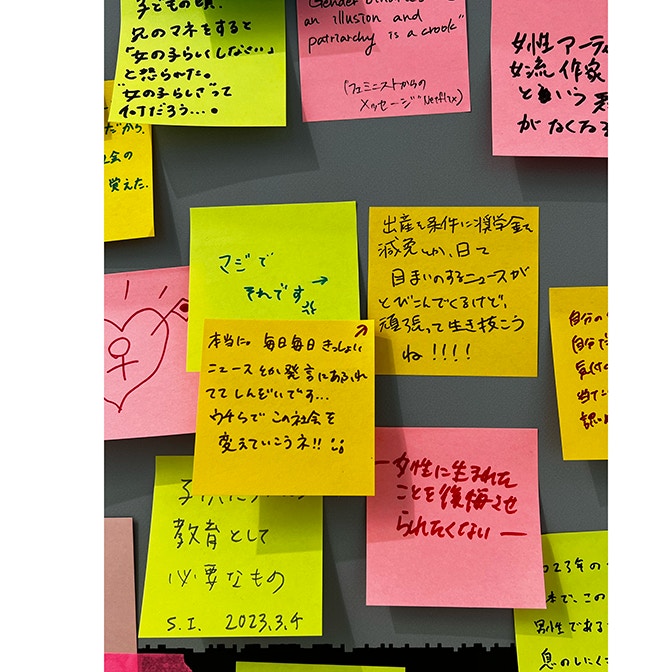 子どもの頃、
兄のマネをすると
「女の子らしくしなさい」
と怒られた。
"女の子らしさ"って
何だろう…。
an illusion and
patriarchy is a crook"
(フェミニストからの
メッセージ Netflix)
女性アーティ
女流作家
という
がなくなる
だから、
社会の
覚えた.
マジで
それです→
出産を条件に奨学金を
減免とか、目て
目まいのするニュースが
とびこんでくるけど、
頑張って生き抜こう
ね!!!!
本当に。毎日毎日きっしょい
ニュースとか発言にあふれ
ててしんどいです…
ウチらでこの社会を
変えていこうネ!!
自分の
自分で
女性に生まれた
ことを後悔させ
られたくない―
教育として
必要なもの
S.I. 2023.3.4
2023年の
本で、この
男性である
息のしにく